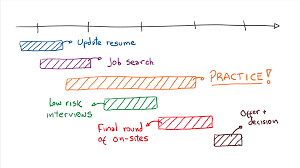 Update resume
Job search
PRACTICE!
Low risk
interviews
Offer +
decision
Final round
of on-sites